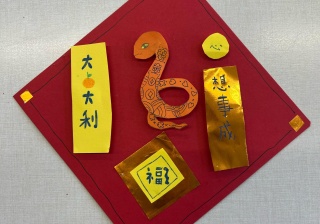 大吉大利
心想事成
福